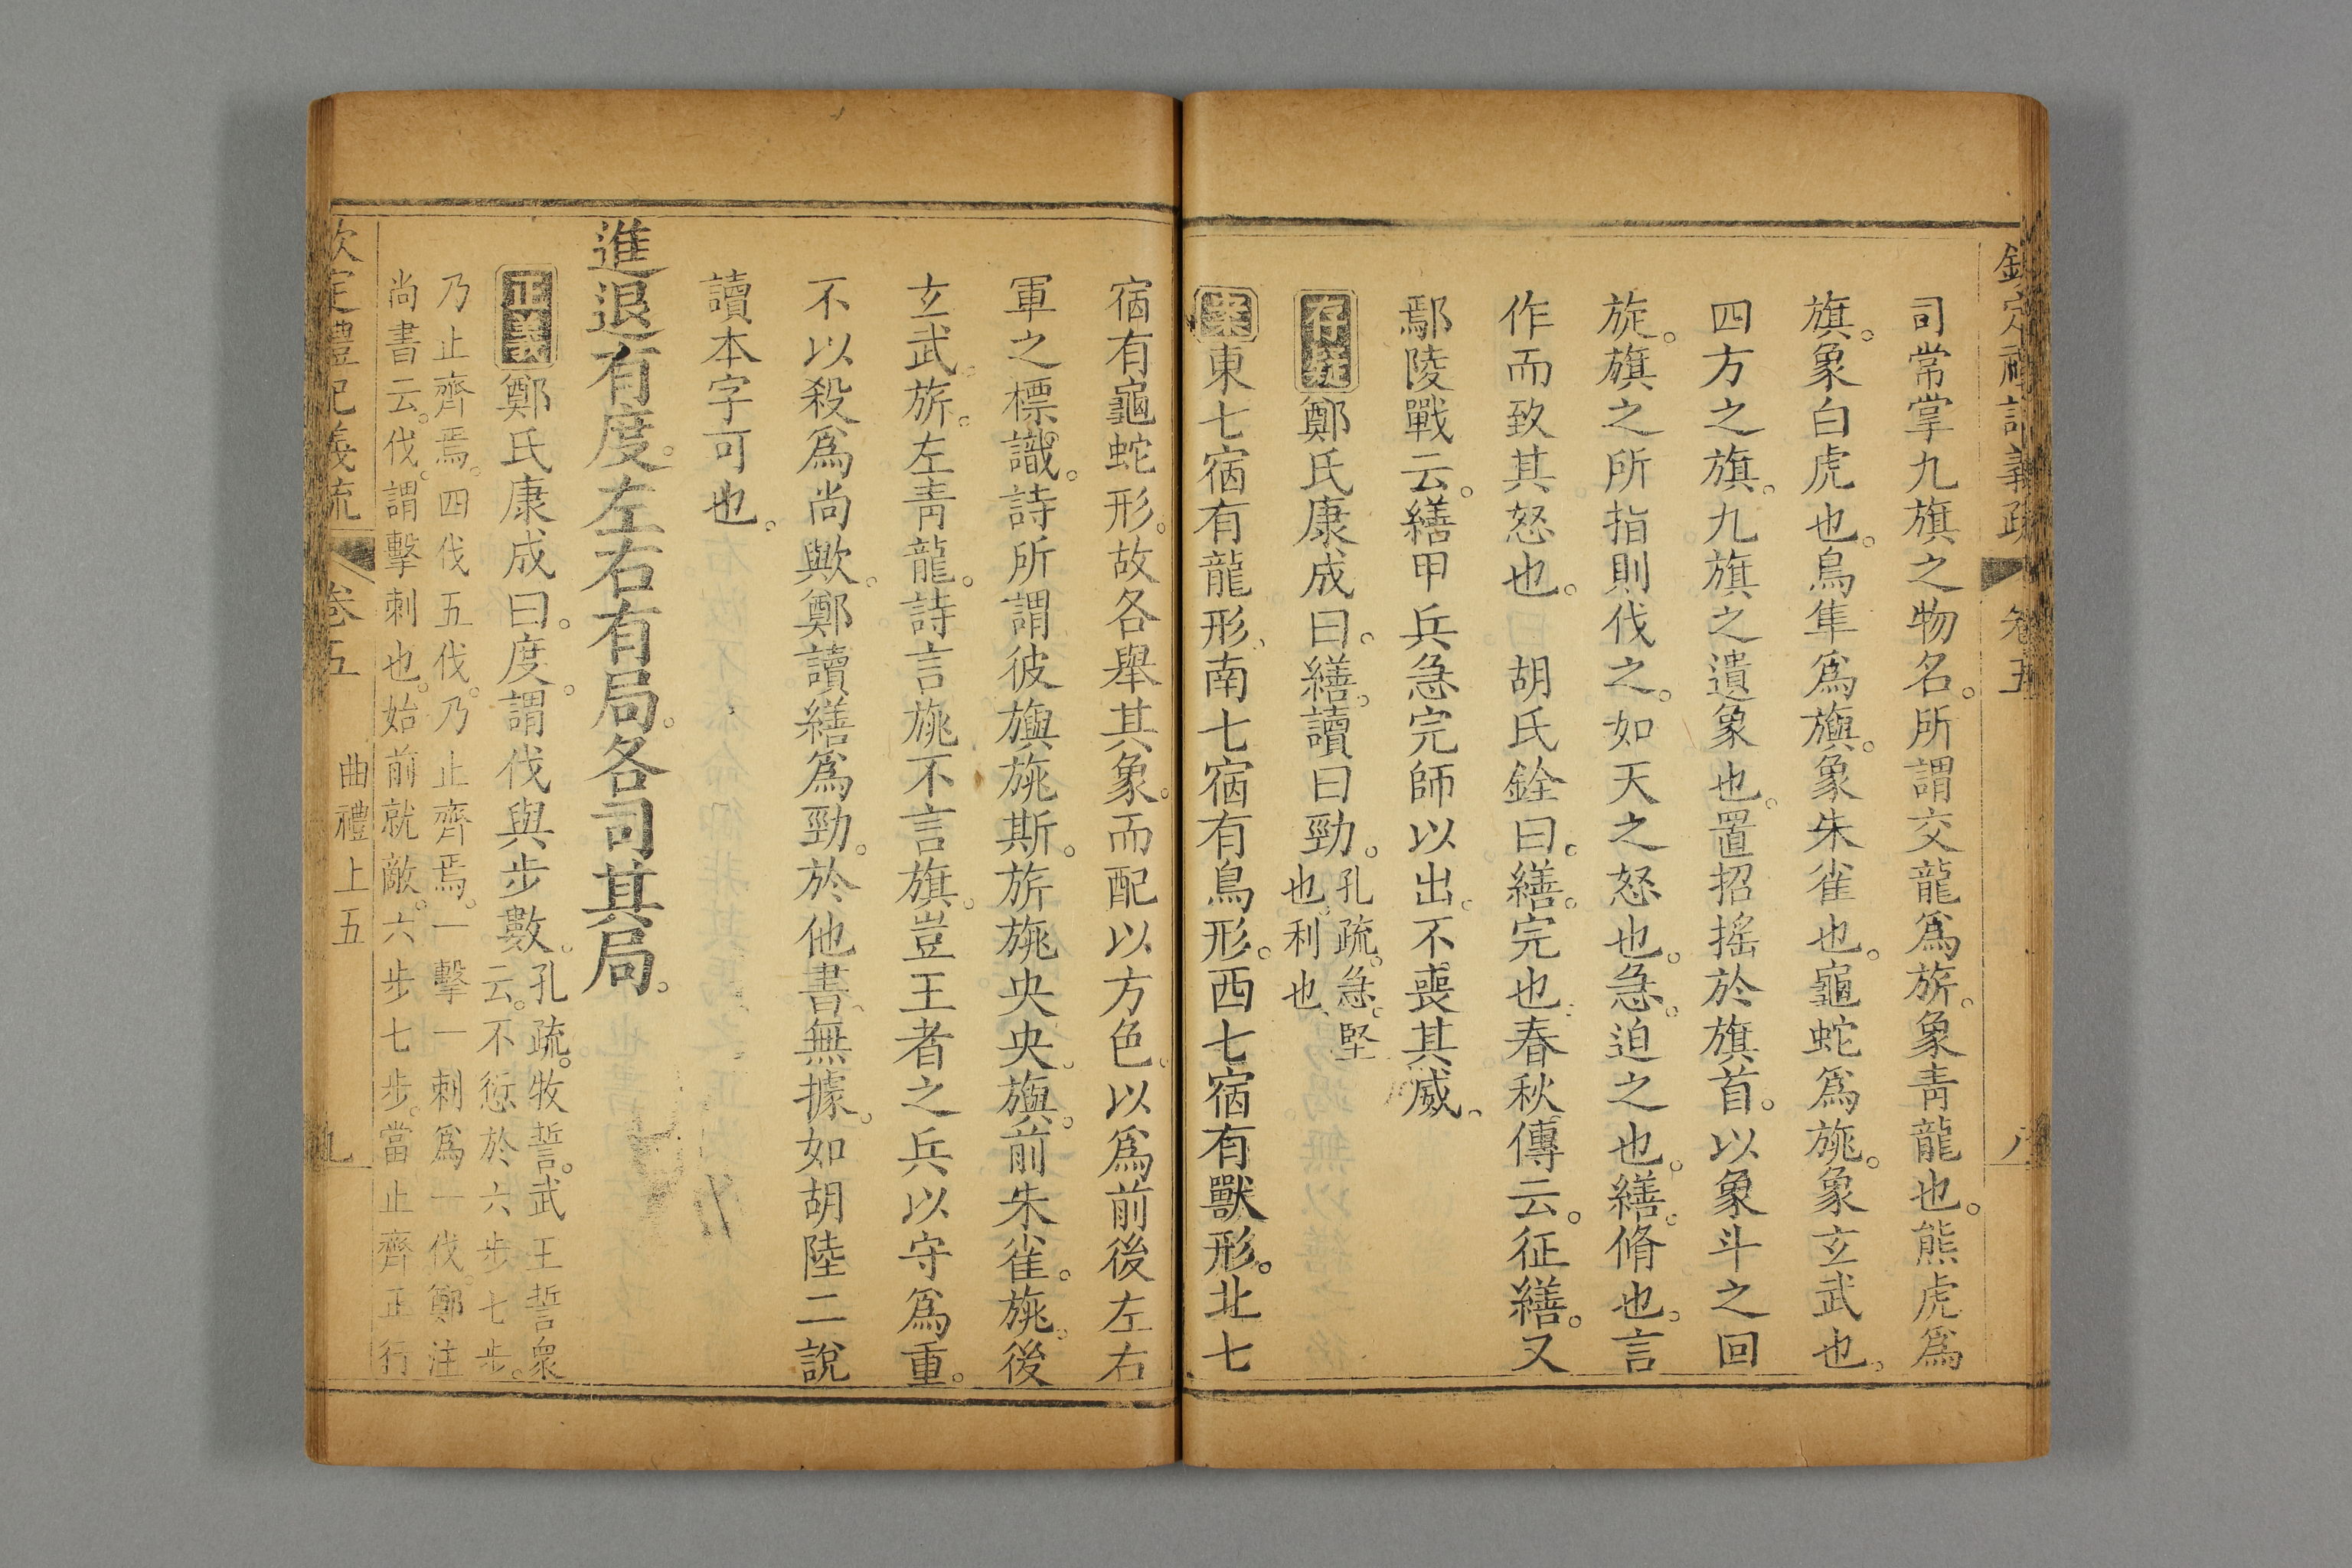 欽定禮記義疏 卷五 八
司常掌九旗之物名。所謂交龍為旂。象青龍也。熊虎為
旗。象白虎也。鳥隼為旟。象朱雀也。龜蛇為旐。象玄武也。
四方之旗。九旗之遺象也。置招搖於旗首。以象斗之回
旋。旗之所指則伐之。如天之怒也。急。迫之也。繕。脩也。言
作而致其怒也。 胡氏銓曰。繕。完也。春秋傳云。征繕。又
鄢陵戰云。繕甲兵急完師以出。不喪其威。
存疑 鄭氏康成曰。繕。讀曰勁。孔疏。急。堅
也。利也。
案 東七宿有龍形。南七宿有鳥形。西七宿有獸形。北七
宿有龜蛇形。故各舉其象。而配以方色。以為前後左右
軍之標識。詩所謂彼旟旐斯。旂旐央央。旟。前朱雀。旐。後
玄武。旂。左青龍。詩言旐不言旗。豈王者之兵以守為重。
不以殺為尚歟。鄭讀繕為勁。於他書。無據。如胡陸二說
讀本字可也。
進退有度。左右有局。各司其局。
正義 鄭氏康成曰。度。謂伐與步數。孔疏。牧誓。武王誓衆
云。不愆於六步七步。
乃止齊焉。四伐五伐。乃止齊焉。一擊一刺為一伐。鄭注
尚書云。伐。謂擊刺也。始前就敵。六步七步。當止齊正行
欽定禮記義疏 卷五 曲禮上五 九